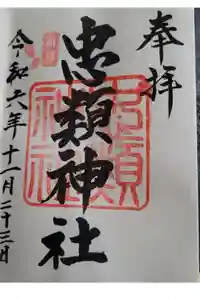 奉拝
忠類神社
令和六年十一月二十三日